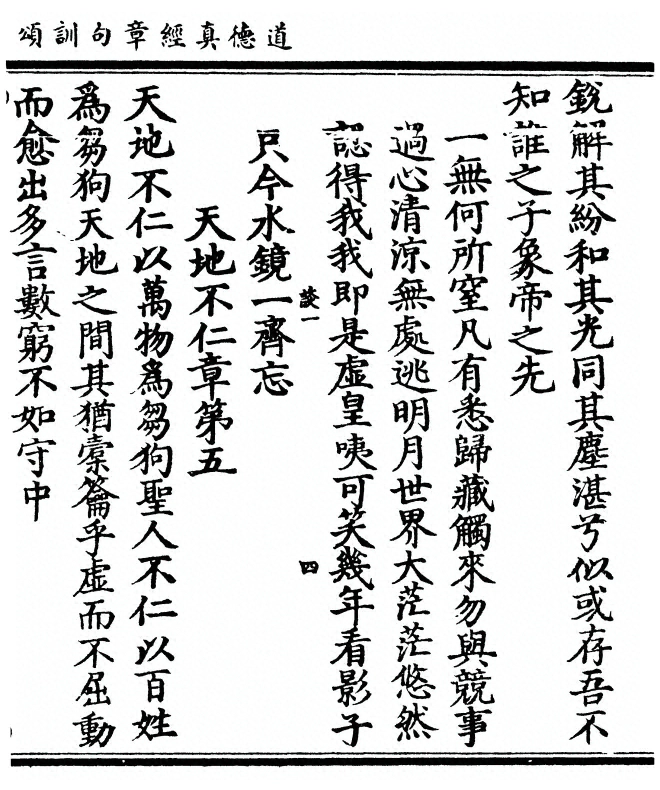 道德真經章句訓頌
銳解其紛和其光同其塵湛兮似或存吾不
知誰之子象帝之先
一無何所窒凡有悉歸藏觸來勿與競事
過心清涼無處逃明月世界大茫茫悠然
認得我我即是虛皇咦可笑幾年看影子
談一
四
只今水鏡一齊忘
天地不仁章第五
天地不仁以萬物為芻狗聖人不仁以百姓
為芻狗天地之間其猶橐籥乎虛而不屈動
而愈出多言數窮不如守中